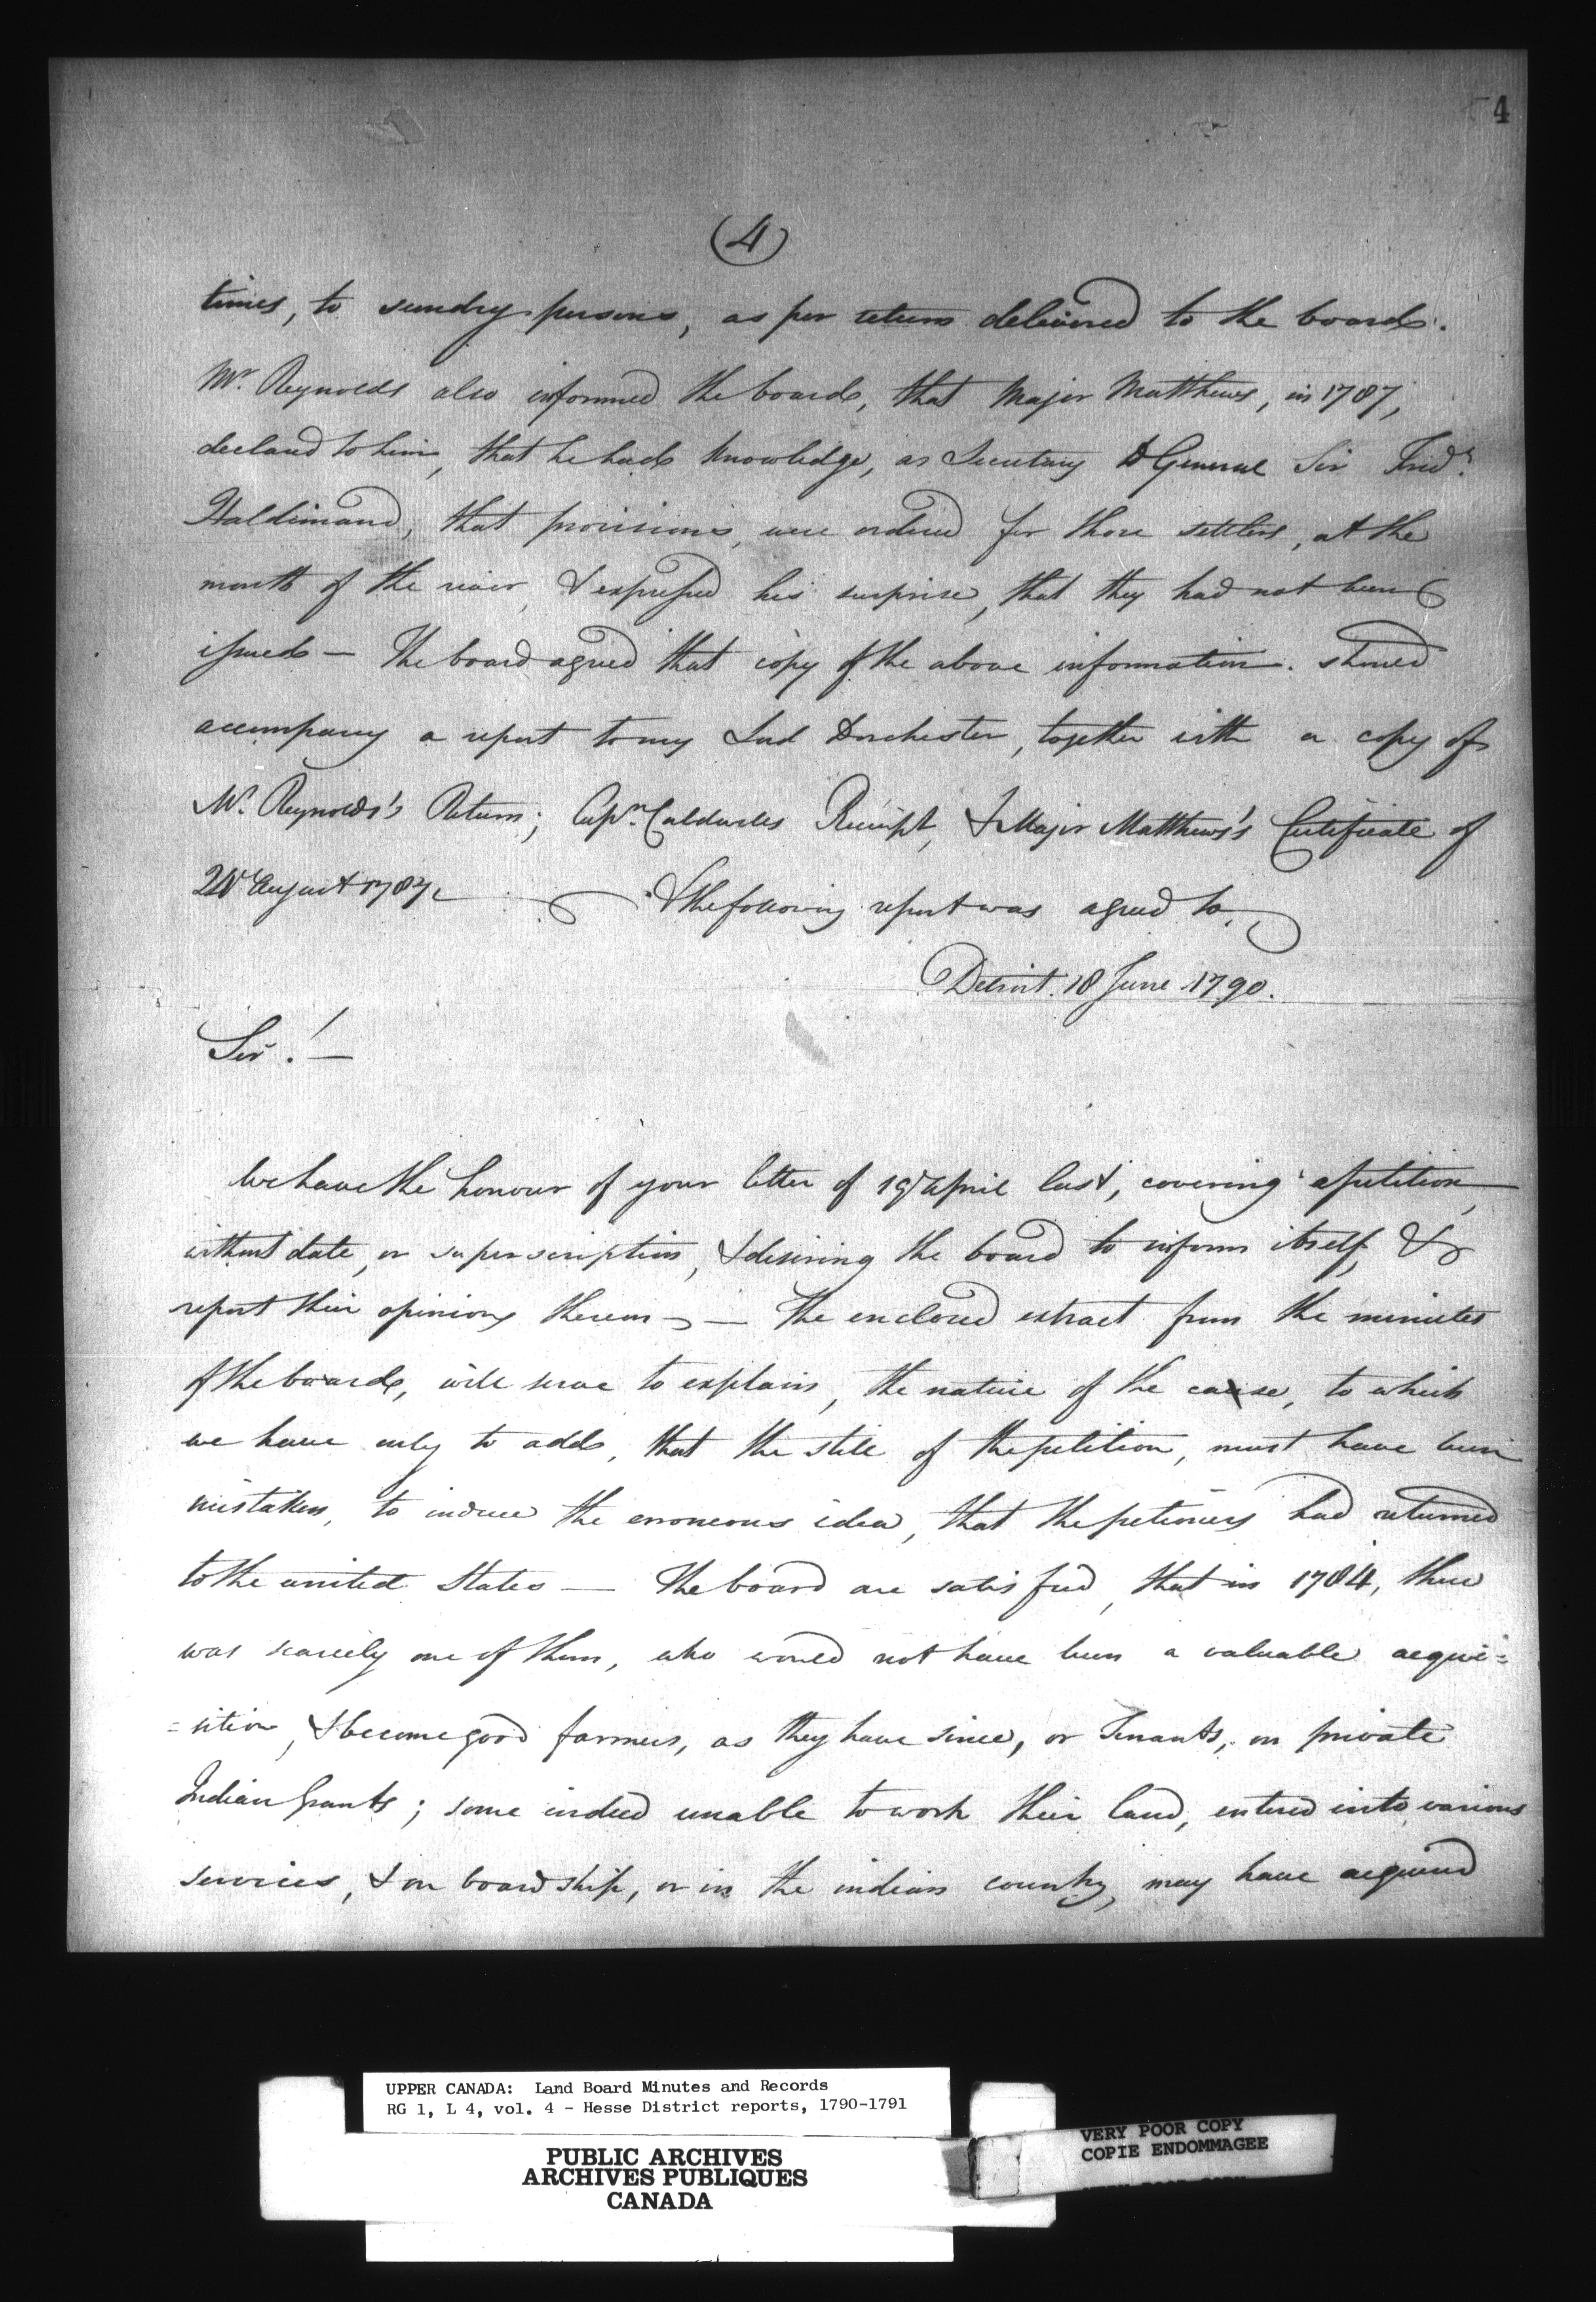 4
(4)
times, to sundry persons, as per return delivered to the board.
Mr. Reynolds also informed the board, that Major Matthews, in 1787,
declared to him, that he had knowledge, as Secretary to General Sir Fredk.
Haldimand, that provisions, were ordered for those settlers, at the
mouth of the river, & expressed his surprise, that they had not been
issued — The board agreed that copy of the above information. should
accompany a report to my Lord Dorchester, together with a copy of
Mr. Reynolds's Return; Capn. Caldwells Receipt, & Major Matthews's Certificate of
August 1787. & the following report was agreed to,
Detroit. 18 June 1790.
Sir! —
We have the honour of your letter of 19 April last, covering a petition,
without date, or superscription, & desiring the board to inform itself, &
report their opinion thereon — The enclosed extract from the minutes
of the board, will serve to explain, the nature of the cause, to which
we have only to add, that the stile of the petition, must have been
mistaken, to induce the erroneous idea, that the petioners had returned
to the united States — The board are satisfied, that in 1784, there
was scarcely one of them, who would not have been a valuable acqui=
=sition, & become good farmers, as they have since, or Tenants, on private
Indian Grants; some indeed unable to work their land, entered into various
services, & on board ship, or in the indian country, may have acquired
UPPER CANADA: Land Board Minutes and Records
RG 1, L 4, vol. 4 - Hesse District reports, 1790-1791
PUBLIC ARCHIVES
ARCHIVES PUBLIQUES
CANADA
VERY POOR COPY
COPIE ENDOMMAGEE